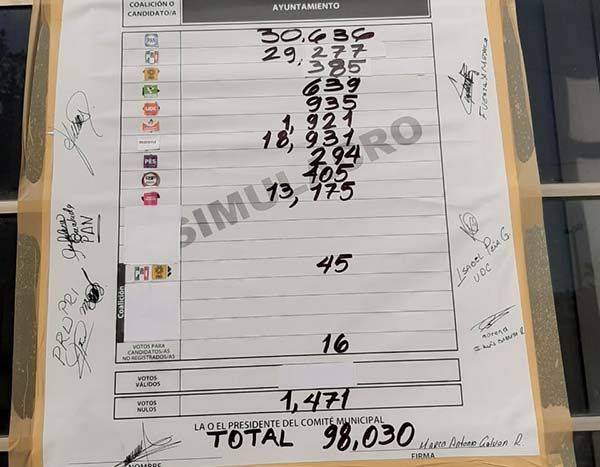 COALICIÓN O
CANDIDATO/A
AYUNTAMIENTO
PAN 30,636
PRI 29,277
PRD 385
639
UDC 935
1,921
morena 18,931
PES 294
405
13,175
SIMULACRO
Coalición
PRI PRD 45
VOTOS PARA
CANDIDATOS/AS
NO REGISTRADOS/AS
16
VOTOS
VÁLIDOS
VOTOS
NULOS
1,471
LA O EL PRESIDENTE DEL COMITÉ MUNICIPAL
TOTAL 98,030
Marco Antonio Galvan R.
NOMBRE
FIRMA
PAN
PRI
FUERZA X MEXICO
UDC
morena